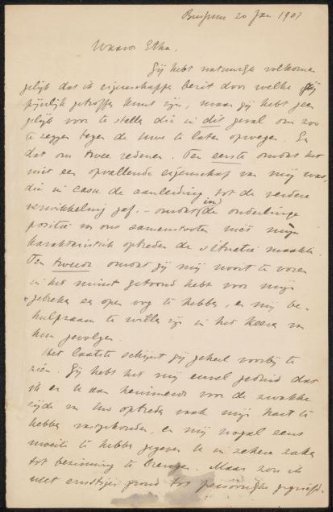 20 Jan 1907
Waarde Etha.
Gij hebt natuurlijk volkomen
gelijk dat ik eigenschappen bezit door welke gij
pijnlijk getroffen kunt zijn, maar gij hebt geen
gelijk voor te stellen die in dit geval om zoo
te zeggen tegen de uwe te laten opwegen. En
dat om twee redenen. Ten eerste omdat het
niet een opvallende eigenschap van mij was,
die in casu de aanleiding tot de verdere
verwikkeling gaf, - omdat in de onderlinge
positie van ons samentreffen niet mijn
karakteristiek optreden de situatie maakte.
Ten tweede omdat gij mij nooit te voren
in het minst getoond hebt voor mijn
gebreken een open oog te hebben, en mij be-
hulpzaam te willen zijn in het keeren van
hun gevolgen.
Het laatste schijnt gij geheel voorbij te
zien. Gij hebt het mij euvel geduid dat
ik er u aan herinnerde voor de zwakke
zijde van uw optreden vaak mijn hart te
hebben vastgehouden, en mij nogal eens
moeite te hebben gegeven u in zekere zaken
tot bezinning te brengen. Maar zou ik
niet ernstiger grond tot persoonlijke